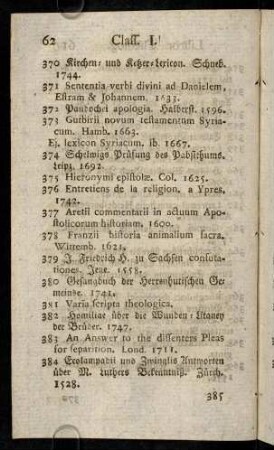 62 Claſſ. I.
370 Kirchen- und Ketzer-Lexicon. Schneb.
1744.
371 Sententia verbi divini ad Danielem,
Eſtram & Johannem. 1633.
372 Pandochei apologia. Halberſt. 1596.
373 Gutbirii novum teſtamentum Syria-
cum. Hamb. 1663.
Ej. lexicon Syriacum. ib. 1667.
374 Schelwigs Prüfung des Pabſtthums.
Leipz. 1692.
375 Hieronymi epiſtolæ. Col. 1625.
376 Entretiens de la religion, a Ypres.
1742.
377 Aretii commentarii in actuum Apo-
ſtolicorum hiſtoriam. 1600.
378 Franzii hiſtoria animalium ſacra.
Wittemb. 1621.
379 J. Friedrich H. zu Sachſen conſuta-
tiones. Jene. 1558.
380 Geſangbuch der Herrenhutiſchen Ge-
meinde. 1741.
381 Varia ſcripta theologica.
382 Homiliae über die Wunden-Litaney
der Brüder. 1747.
383 An Answer to the diſſenters Pleas
for ſeparition. Lond. 1711.
384 Ecolampadii und Zwinglis Antworten
über M. Luthers Bekentniß. Zürch.
1528.
385